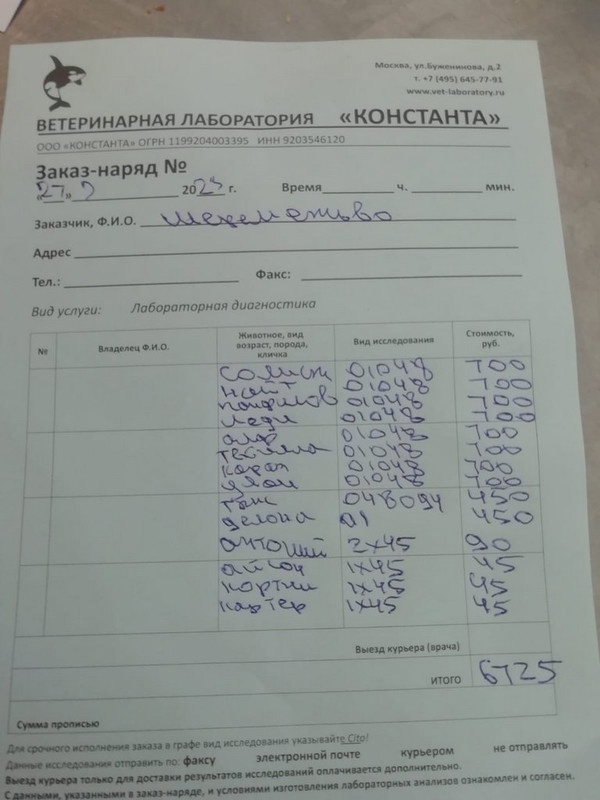 Москва, ул.Буженинова, д.2
т. +7 (495) 645-77-91
www.vet-laboratory.ru
ВЕТЕРИНАРНАЯ ЛАБОРАТОРИЯ «КОНСТАНТА»
ООО «КОНСТАНТА» ОГРН 1199204003395 ИНН 9203546120
Заказ-наряд №
«27» 20 г. Время ч. мин.
Заказчик, Ф.И.О.
Адрес
Тел.: Факс:
Вид услуги: Лабораторная диагностика
№ Владелец Ф.И.О. Животное, вид возраст, порода, кличка Вид исследования Стоимость, руб.
01048 700
найт 01048 700
01048 700
леди 01048 700
01048 700
01048 700
01048 700
01048 700
048094 450
450
антоний 2х45 90
айсон 1х45 45
кортни 1х45 45
картер 1х45 45
Выезд курьера (врача)
ИТОГО 6725
Сумма прописью
Для срочного исполнения заказа в графе вид исследования указывайте Cito!
Данные исследования отправить по: факсу электронной почте курьером не отправлять
Выезд курьера только для доставки результатов исследований оплачивается дополнительно.
С данными, указанными в заказ-наряде, и условиями изготовления лабораторных анализов ознакомлен и согласен.